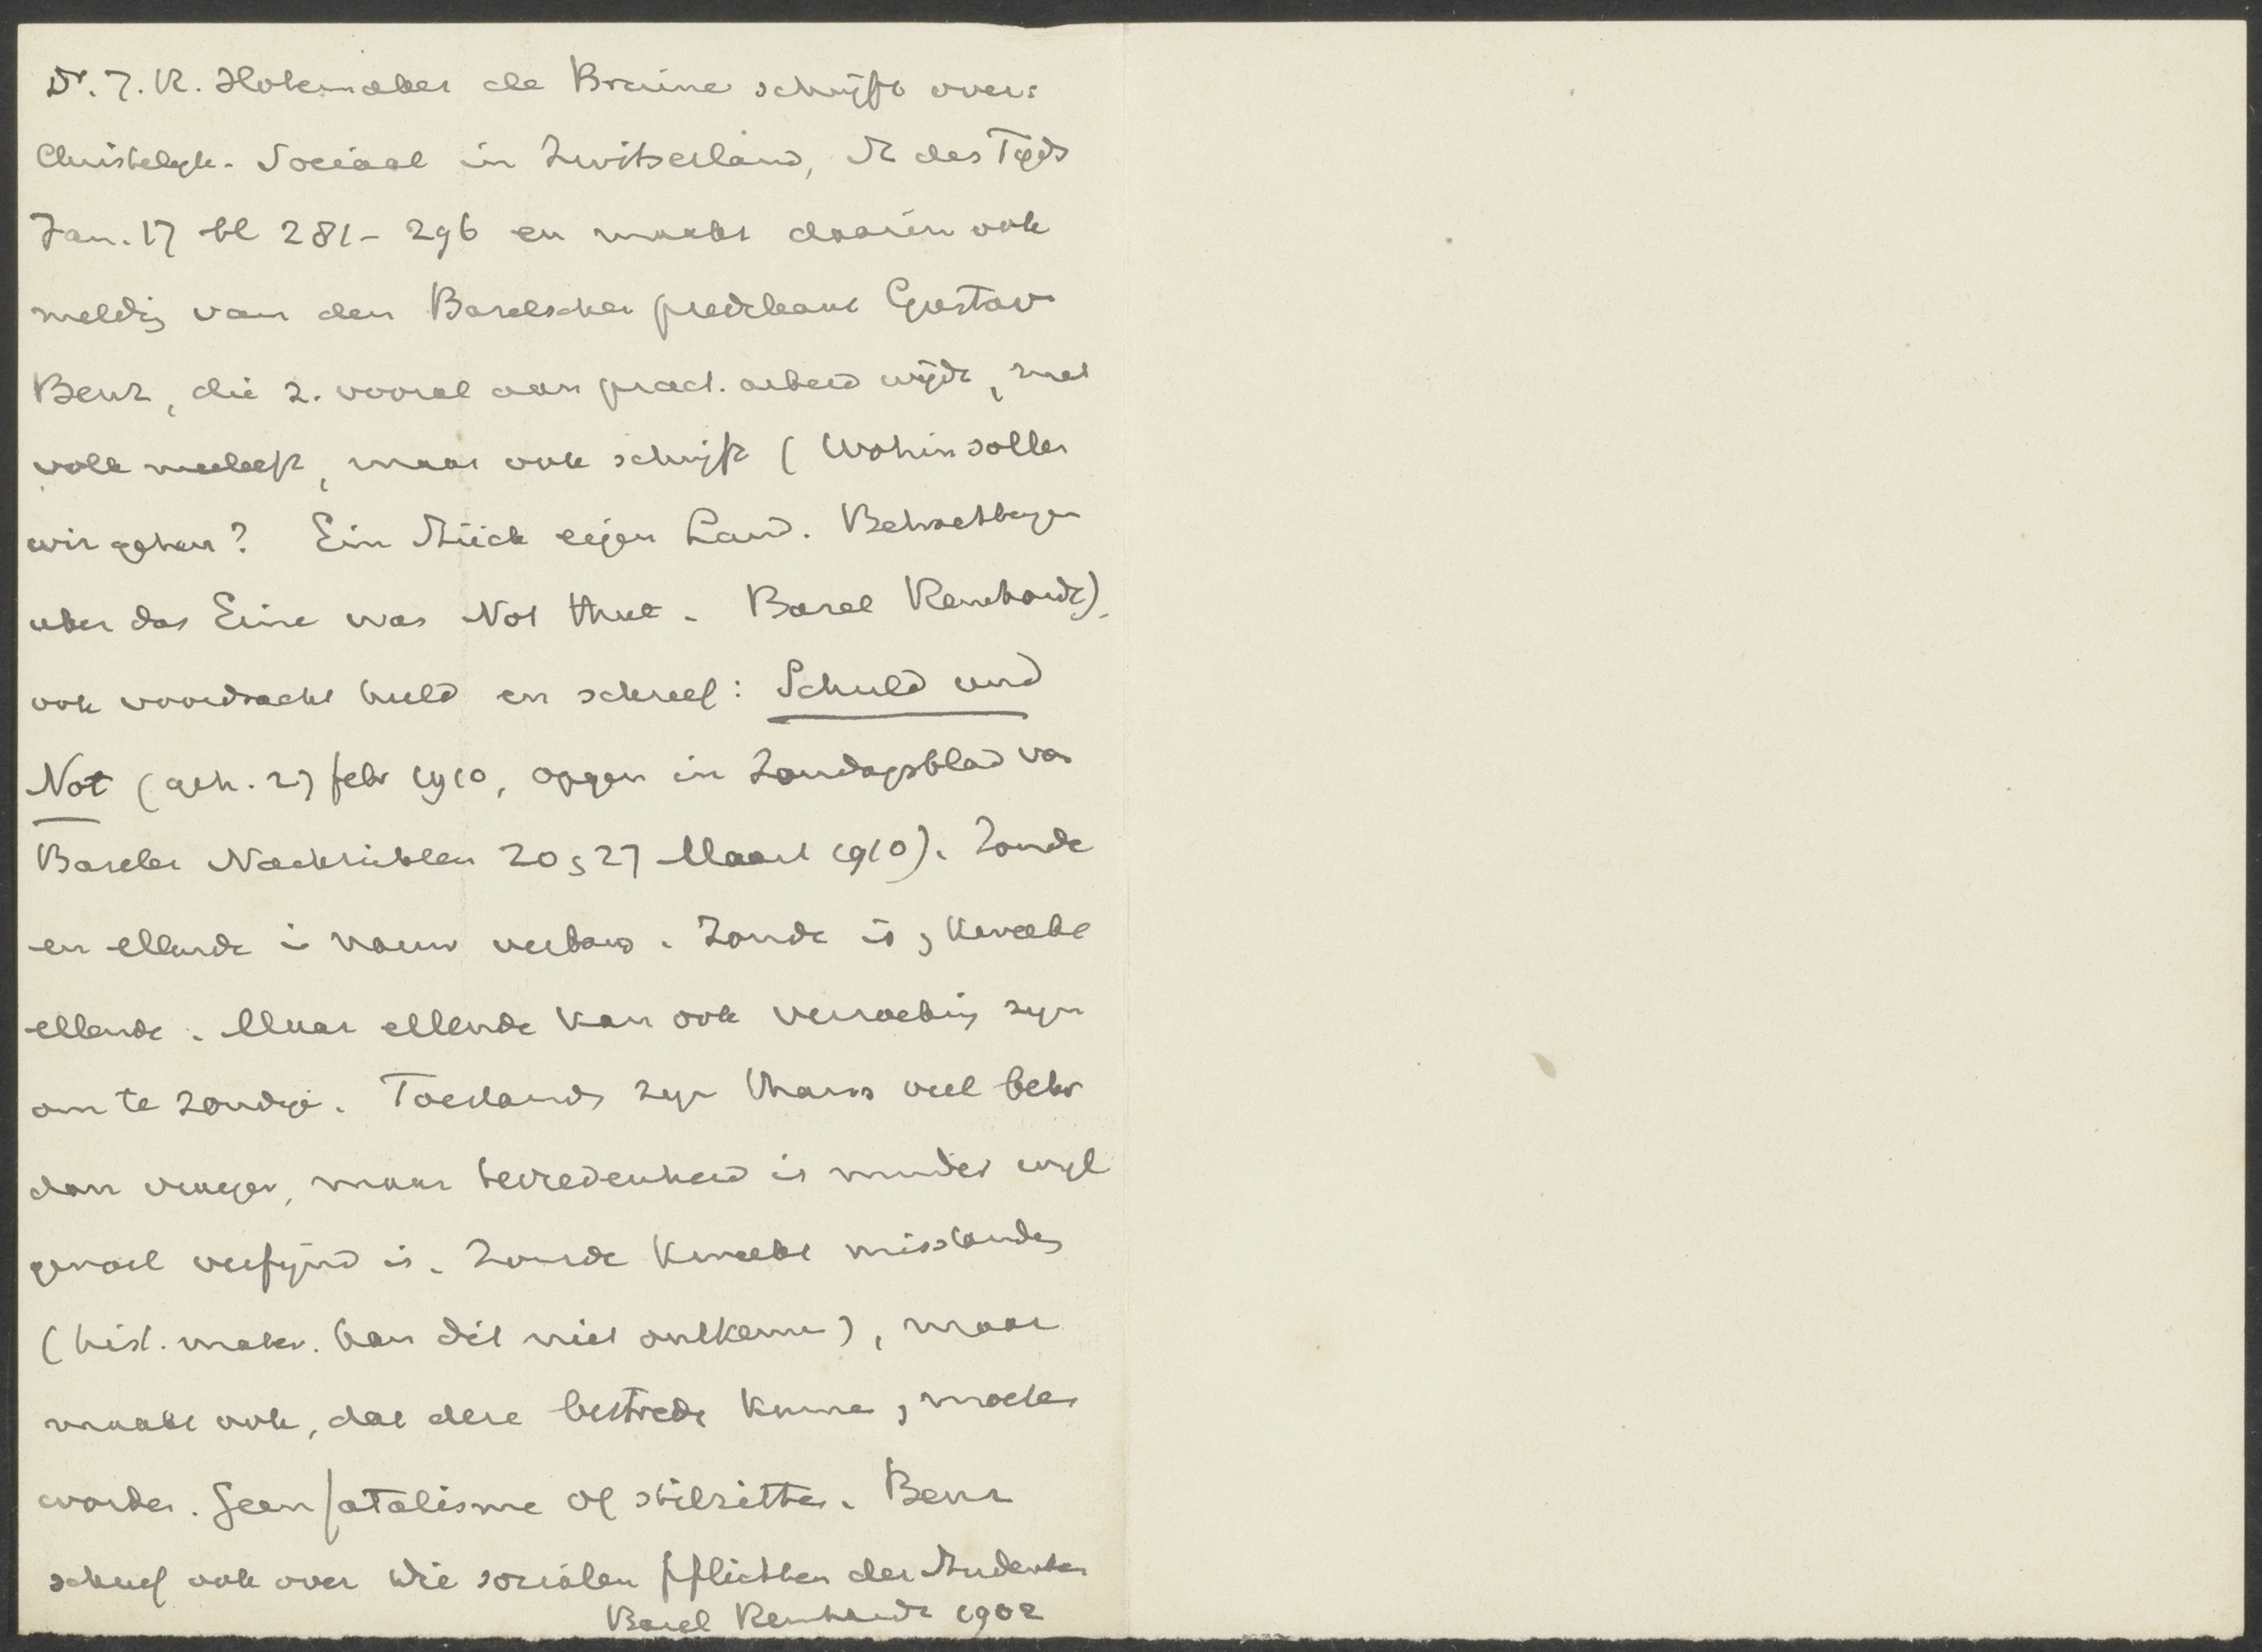 Dr. J. R. Slotemaker de Bruine schrijft over:
Christelijk-Sociaal in Zwitserland, St des Tijds
Jan. 17 bl 281-296 en maakt daarin ook
meldg van den Baselschen predikant Gustav
Benz, die z. vooral aan pract. arbeid wijdt, met
volk meeleeft, maar ook schrijft (Wohin sollen
wir gehen? Ein Stück eigen Land. Betrachtungen
uber das Eine was Not thut. Basel Reinhardt),
ook voordracht hield en schreef: Schuld und
Not (geh. 27 febr 1910, opgen in Zondagsblad van
Baseler Nachrichten 20 en 27 Maart 1910). Zonde
en ellende in nauw verband. Zonde is en kweekt
ellende. Maar ellende kan ook verzoeking zijn
om te zondigen. Toestanden zijn thans veel beter
dan vroeger, maar tevredenheid is minder wijl
gevoel verfijnd is. Zonde kweekt misstanden
(hist. mater. kan dit niet ontkennen), maar
maakt ook, dat deze bestreden kunnen en moeten
worden. Geen fatalisme of stilzitten. Benz
schreef ook over Die socialen Pflichten der Studenten
Basel Reinhardt 1902